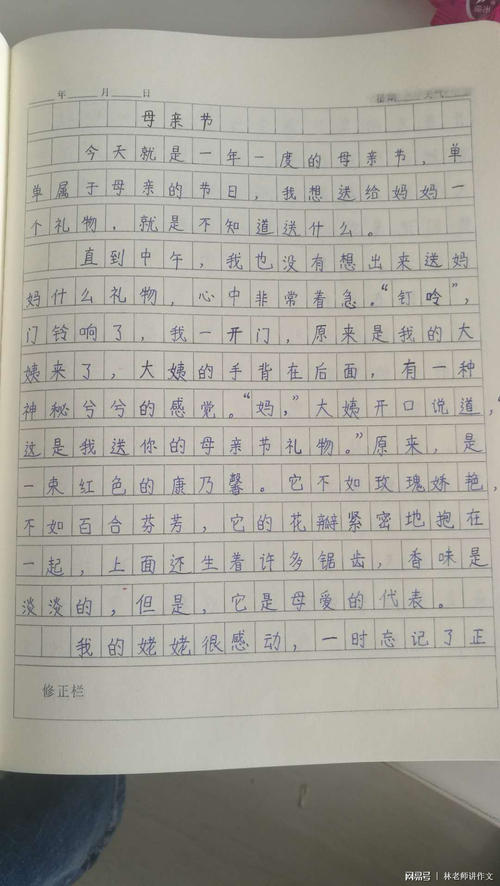 年 月 日
母亲节
今天就是一年一度的母亲节，单
单属于母亲的节日，我想送给妈妈一
个礼物，就是不知道送什么。
直到中午，我也没有想出来送妈
妈什么礼物，心中非常着急。“钉呤”，
门铃响了，我一开门，原来是我的大
姨来了，大姨的手背在后面，有一种
神秘兮兮的感觉。“妈，”大姨开口说道，“
这是我送你的母亲节礼物。”原来，是
一束红色的康乃馨。它不如玫瑰娇艳，
不如百合芬芳，它的花瓣紧密地抱在
一起，上面还生着许多锯齿，香味是
淡淡的，但是，它是母爱的代表。
我的姥姥很感动，一时忘记了正
修正栏
网易号 | 林老师讲作文